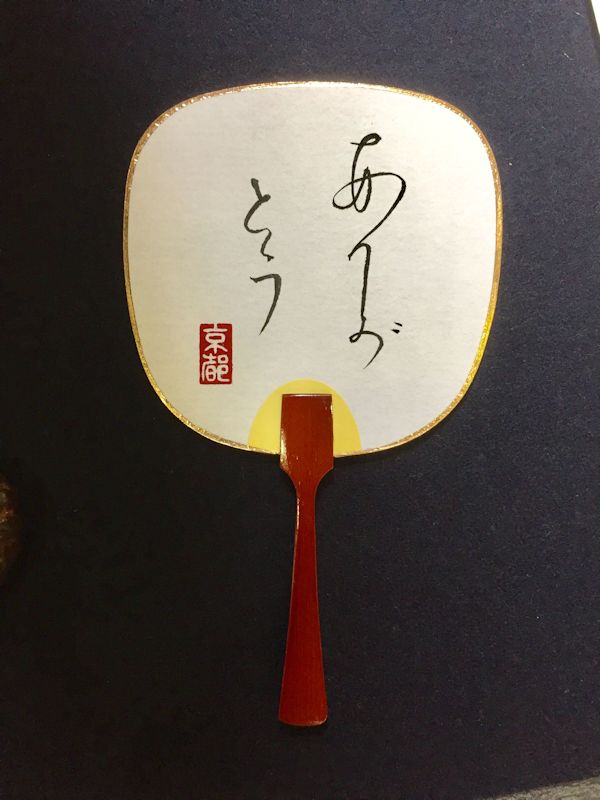 ありが
とう
京都